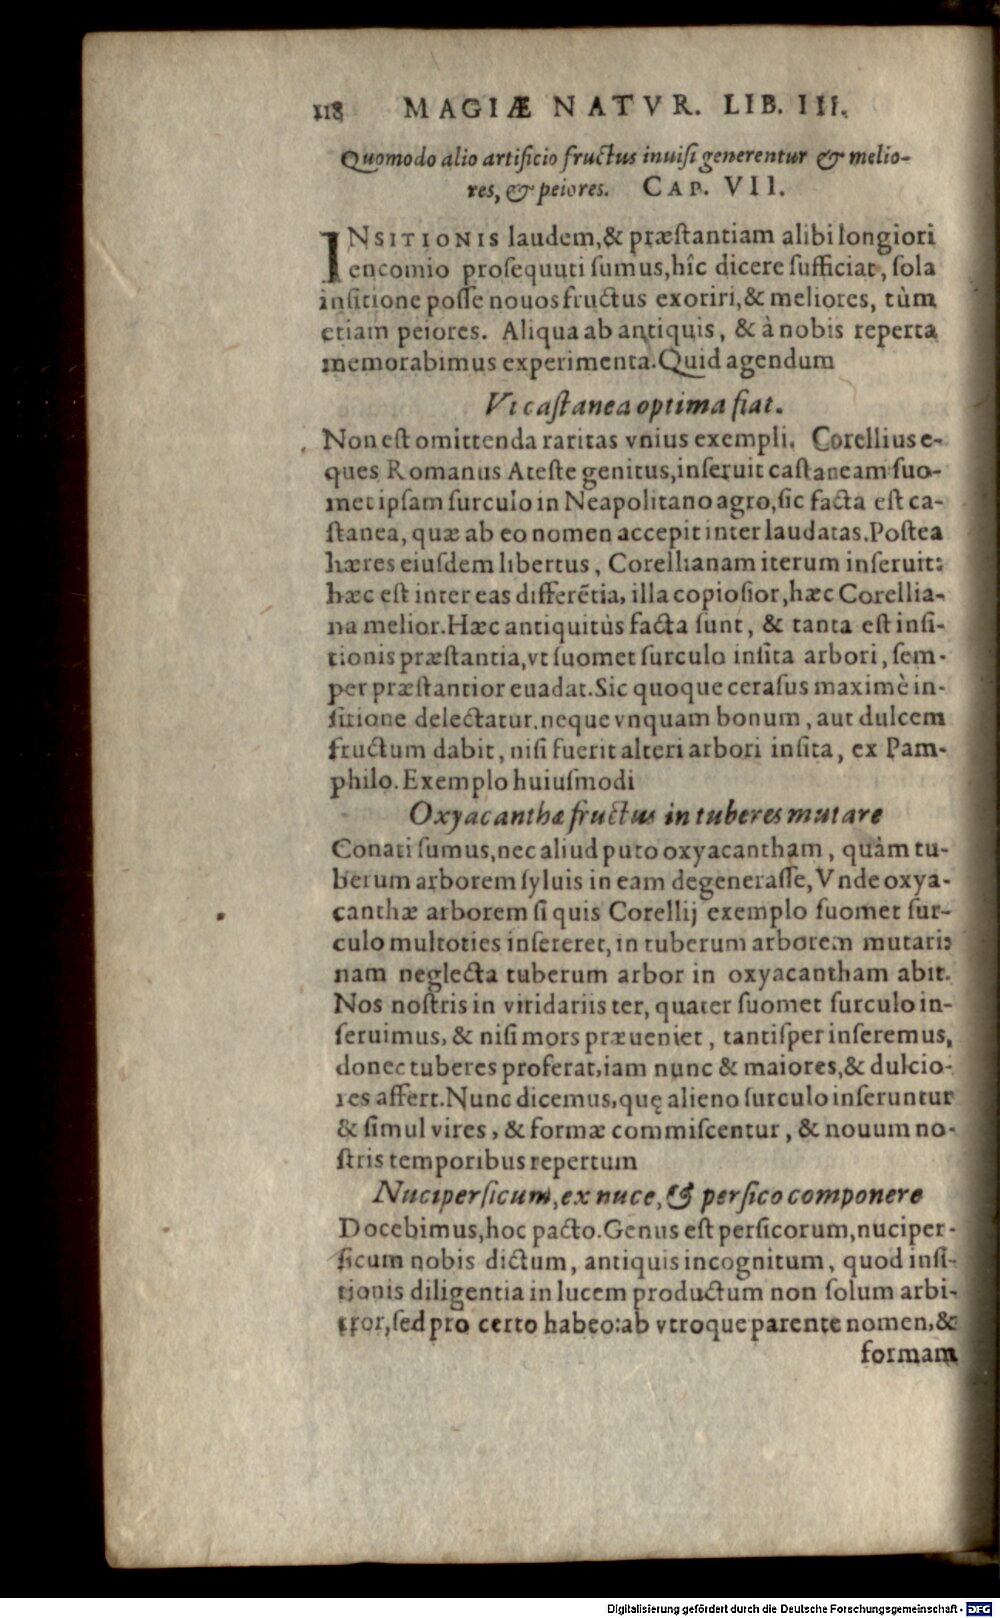 118 MAGIÆ NATVR. LIB. III.
Quomodo alio artificio fructus inuisi generentur & melio-
res, & peiores. CAP. VII.
INSITIONIS laudem, & præstantiam alibi longiori
encomio prosequuti sumus, hîc dicere sufficiat, sola
insitione posse nouos fructus exoriri, & meliores, tùm
etiam peiores. Aliqua ab antiquis, & à nobis reperta
memorabimus experimenta. Quid agendum
Vt castanea optima fiat.
Non est omittenda raritas vnius exempli. Corellius e-
ques Romanus Ateste genitus, inseruit castaneam suo-
met ipsam surculo in Neapolitano agro, sic facta est ca-
stanea, quæ ab eo nomen accepit inter laudatas. Postea
hæres eiusdem libertus, Corellianam iterum inseruit:
hæc est inter eas differẽtia, illa copiosior, hæc Corellia-
na melior. Hæc antiquitùs facta sunt, & tanta est insi-
tionis præstantia, vt suomet surculo insita arbori, sem-
per præstantior euadat. Sic quoque cerasus maximè in-
sitione delectatur. neque vnquam bonum, aut dulcem
fructum dabit, nisi fuerit alteri arbori insita, ex Pam-
philo. Exemplo huiusmodi
Oxyacanthæ fructus in tuberes mutare
Conati sumus, nec aliud puto oxyacantham, quàm tu-
berum arborem syluis in eam degenerasse, Vnde oxya-
canthæ arborem si quis Corellij exemplo suomet sur-
culo multoties insereret, in tuberum arborem mutari:
nam neglecta tuberum arbor in oxyacantham abit.
Nos nostris in viridariis ter, quater suomet surculo in-
seruimus, & nisi mors præueniet, tantisper inseremus,
donec tuberes proferat, iam nunc & maiores, & dulcio-
res affert. Nunc dicemus, quę alieno surculo inseruntur
& simul vires, & formæ commiscentur, & nouum no-
stris temporibus repertum
Nucipersicum, ex nuce, & persico componere
Docebimus, hoc pacto. Genus est persicorum, nuciper-
sicum nobis dictum, antiquis incognitum, quod insi-
tionis diligentia in lucem productum non solum arbi-
tror, sed pro certo habeo: ab vtroque parente nomen, &
formam
Digitalisierung gefördert durch die Deutsche Forschungsgemeinschaft - DFG